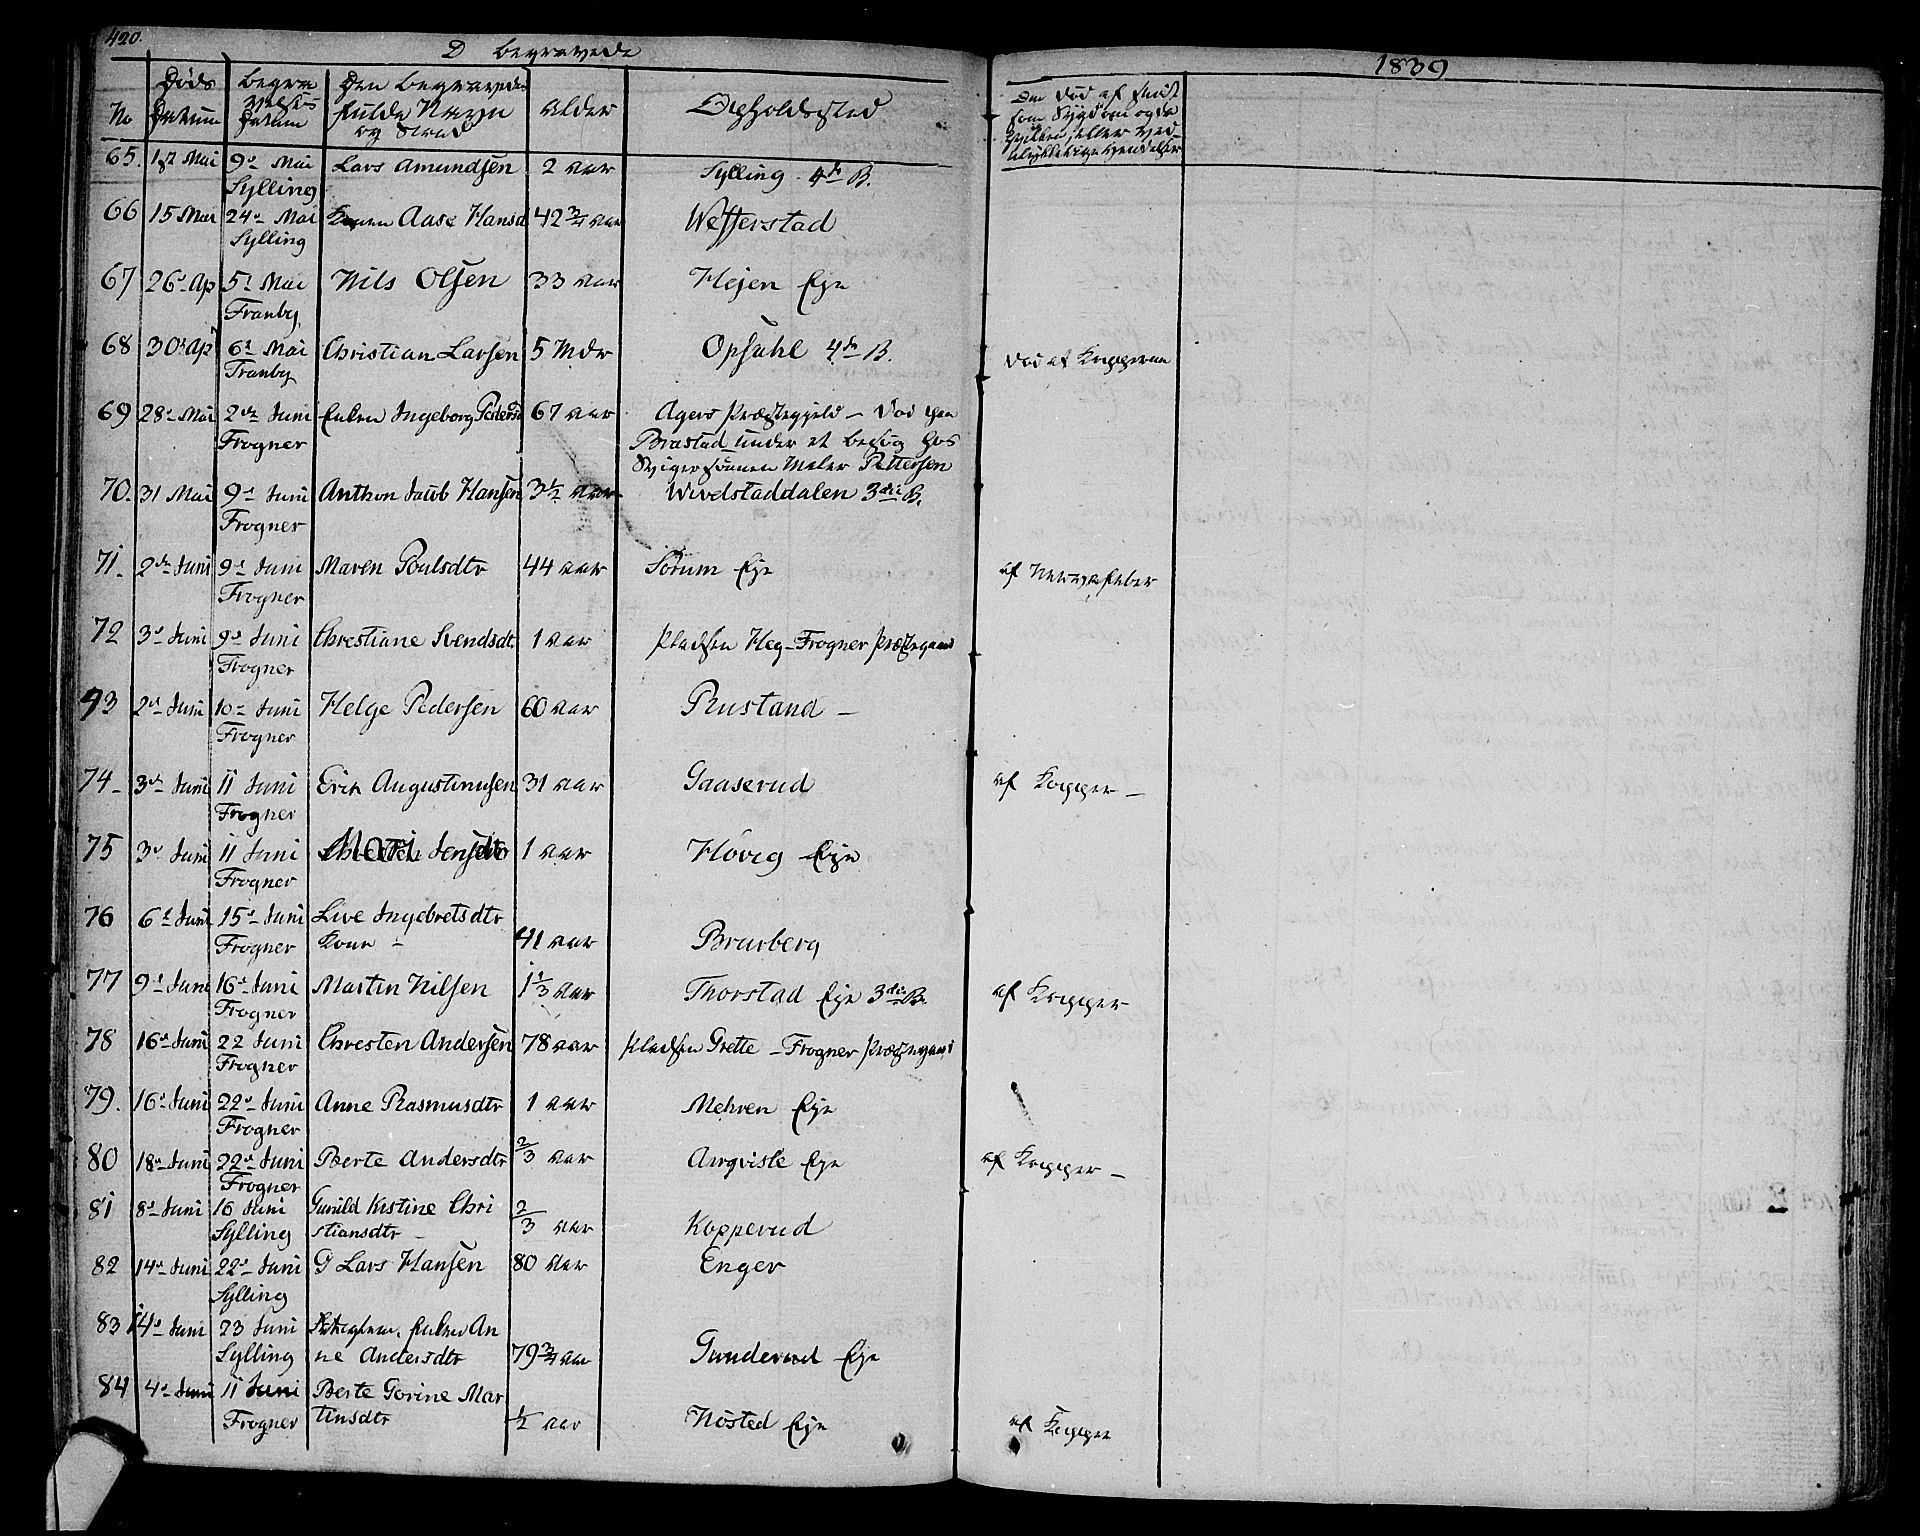 420.
D Begravede
1839
No
Døds Datum
Begra velses Datum
Den Begravedes fulde Navn og Stand
Alder
Opholdssted
Om død af smit som Sygdom og da hvilken, eller ved ulykkelige Hendelser
65. 18de Mai 9de Mai Lars Amundsen 2 aar Sylling 4de B.
Sylling
66 15 Mai 24de Mai Karen Aase Hansd 42 3/4 aar Wefferstad
Sylling
67 26de Ap 5te Mai Nils Olsen 33 aar Hejen Eje
Tranby
68 30te Ap 6te Mai Christian Larsen 5 Mdr Opsahl 4de B. død af Kopperne
Tranby
69 28de Mai 2den Juni Enken Ingeborg Pedersd 67 aar Agers Præstegjeld – død paa
Frogner Brastad under et besøg hos
Svigersønnen Maler Pettersen
70. 31 Mai 9de Juni Anthon Jacob Hansen 3 1/2 aar Wivelstaddalen 3die B.
Frogner
71 2den Juni 9de Juni Maren Poulsdtr 44 aar Sørum Eje af Nervefeber
Frogner
72 3de Juni 9de Juni Chrestiane Svendsdt. 1 aar Pladsen Heg – Frogner Præstegaard
Frogner
73 2den Juni 10de Juni Helge Pedersen 60 aar Rustand –
Frogner
74 – 3de Juni 11 Juni Erik Augustinusen 31 aar Gaaserud af Kopper –
Frogner
75 3de Juni 11 Juni Mari Jensdtr 1 aar Høvig Eje
Frogner
76 6te Juni 15de Juni Live Ingebretsdtr
Frogner Kone – 41 aar Brurberg
77 9de Juni 16de Juni Martin Nilsen 1 1/3 aar Thorstad Eje 3die B. af Kopper –
Frogner
78 16de Juni 22 Juni Chresten Andersen 78 aar Pladsen Grette – Frogner Præstegaard
Frogner
79. 16de Juni 22de Juni Anne Rasmusdtr 1 aar Mehren Eje
Frogner
80 18de Juni 22de Juni Berte Andersdtr 2/3 aar Arqvisle Eje af Kopper –
Frogner
81 8de Juni 16 Juni Gunild Kistine Chri
Sylling stiansdtr – 2/3 aar Kopperud
82 14de Juni 22de Juni G Lars Hansen 80 aar Enger
Sylling
83 14de Juni 23 Juni Enken An
Sylling ne Andersdtr 79 3/4 aar Gunderud Eje
84 4de Juni 11 Juni Berte Gorine Mar
Frogner tinsdtr 1/2 aar Nøsted Eje af Kopper